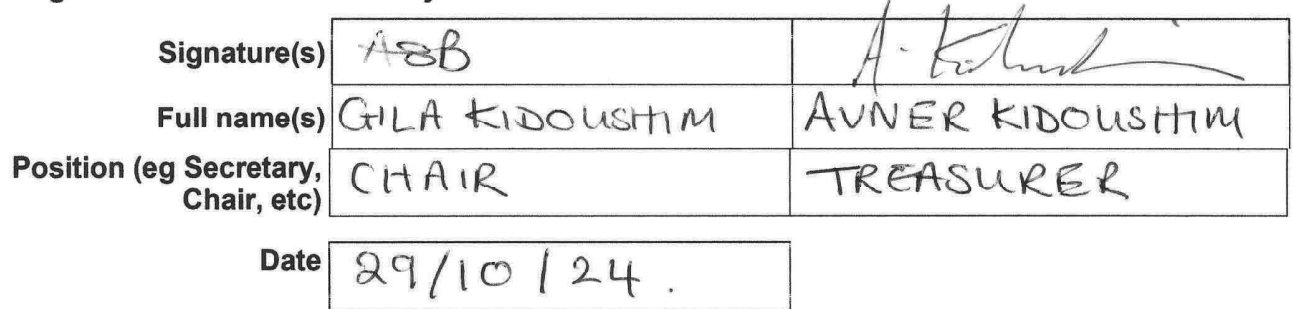 Signature(s) A8B A. Kidoushim
Full name(s) GILA KIDOUSHIM AVNER KIDOUSHIM
Position (eg Secretary, Chair, etc) CHAIR TREASURER
Date 29/10/24.